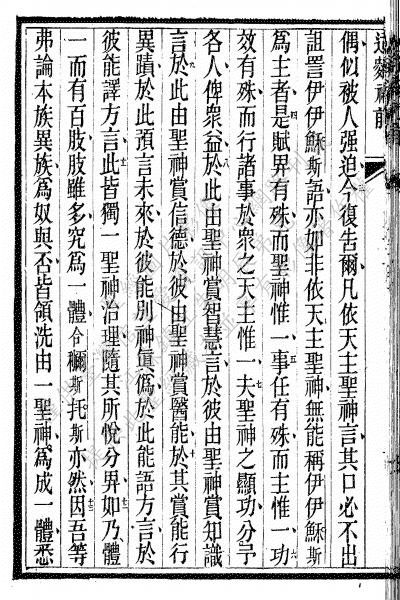 偶似被人强迫今復告爾凡依天主聖神言其口必不出
詛詈伊伊穌斯語亦如非依天主聖神無能稱伊伊穌斯
爲主者是四賦畀有殊而聖神惟一五事任有殊而主惟一六功
效有殊而行諸事於衆之天主惟一七夫聖神之顯功分予
各人俾衆益八於此由聖神賞智慧言於彼由聖神賞知識
言九於此由聖神賞信德於彼由聖神賞醫能十於其賞能行
異蹟於此預言未來於彼能別神眞僞於此能語方言於
彼能譯方言十一此皆獨一聖神治理隨其所悅分畀十二如乃體
一而有百肢肢雖多究爲一體合穪斯托斯亦然十三因吾等
弗論本族異族爲奴與否皆領洗由一聖神爲成一體悉